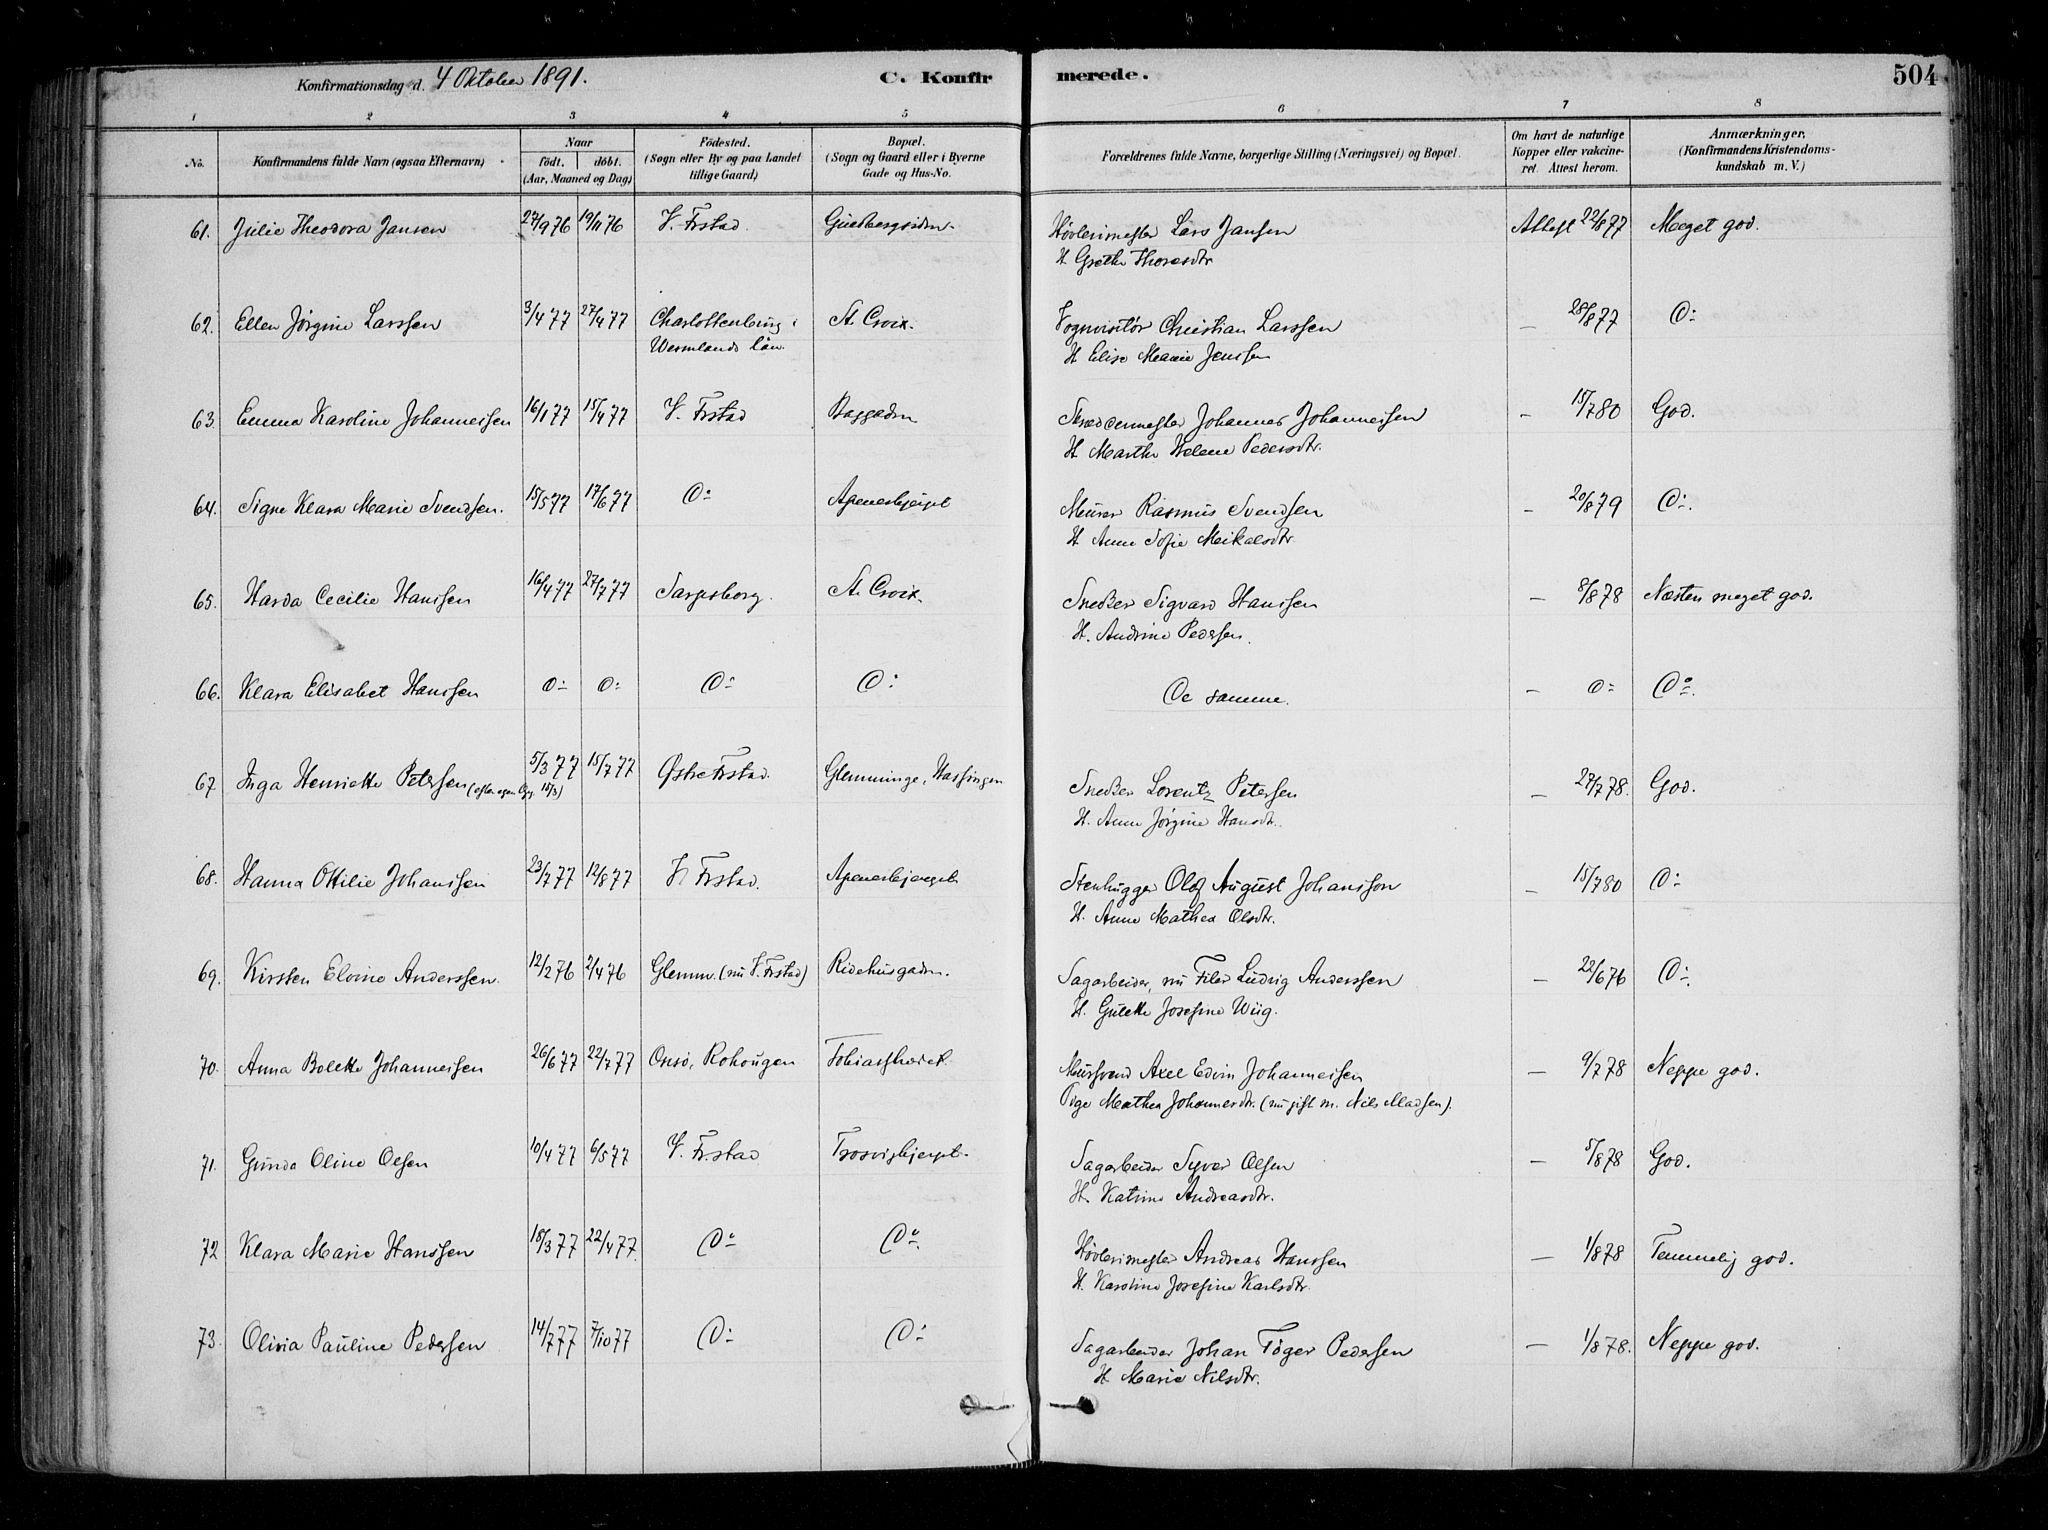 Konfirmationsdag d. 4 Oktober 1891. C. Konfirmerede. 504
1 2 3 4 5 6 7 8
No. Konfirmandens fulde Navn (ogsaa Efternavn) Naar født, døbt. (Aar, Maaned og Dag) Födested. (Sogn eller By og paa Landet tillige Gaard) Bopæl. (Sogn og Gaard eller i Byerne Gade og Hus-No. Forældrenes fulde Navne, borgerlige Stilling (Næringsvei) og Bopæl. Om havt de naturlige Kopper eller vakcineret. Attest herom. Anmærkninger, (Konfirmandens Kristendomskundskab m. V.)
61. Julie Theodora Jansen 27/9 76 19/11 76 V. Frstad. Høvlerimester Lars Jansen Attest 22/8 77 Meget god.
H. Grethe Thoresdtr
62. Ellen Jørgine Larssen 3/4 77 27/4 77 Charlottenberg i St. Croix. Vognvisitør Christian Larssen – 28/8 77 Do
Wermlands Län. H. Elise Marie Jenssen
63. Emma Karoline Johannessen 16/1 77 15/4 77 V. Frstad Baggaden Skreddermester Johannes Johannessen – 15/7 80 God.
H. Marthe Helene Pedersdtr.
64. Signe Klara Marie Svendsen. 15/5 77 17/6 77 Do Apenesbjerget Murer Rasmus Svendsen – 20/8 79 Do.
H. Anne Sofie Meikalsdtr.
65. Harda Cecilie Hanssen 16/4 77 27/7 77 Sarpsborg. St. Croix. Snedker Sigvard Hanssen – 8/8 78 Næsten meget god.
H. Andrine Pedersen.
66. Klara Elisabet Hanssen Do Do Do Do De samme. – Do Do.
67. Inga Henriette Petersen (efter egen Opg. 15/3) 5/3 77 15/7 77 Østre Frstad. Glemminge, Hassingen Snedker Lorentz Petersen – 27/7 78. God.
H. Anne Jørgine Hansdtr.
68. Hanna Otilie Johanssen 23/7 77 12/8 77 V. Frstad. Apenesbjerget Stenhugger Olof August Johansson – 15/7 80 Do
H. Anne Mathea Olsdtr.
69. Kirsten Elvine Anderssen. 12/2 76 2/4 76 Glemm. (nu V. Frstad) Ridehusgaden. Sagarbeider, nu Filer Ludvig Anderssen – 22/6 76 Do.
H. Gulette Josefine Wiig.
70. Anna Bolette Johannessen 26/6 77 22/7 77 Onsø, Rohougen Murssvend Axel Edvin Johannessen – 9/7 78 Neppe god.
Pige Mathea Johannesdtr. (nu gift m. Nils Madsen).
71. Gunda Oline Olsen 10/4 77 6/5 77 V. Frstad Trosvigbjerget. Sagarbeider Syver Olsen – 5/8 78 God.
H. Katrine Andreasdtr.
72 Klara Marie Hanssen 18/3 77 22/4 77. Do Do. Høvlerimester Andreas Hanssen – 1/8 78 Temmelig god.
H. Karoline Josefine Karlsdtr.
73. Olivia Pauline Pedersen 14/7 77 7/10 77 Do Do Sagarbeider Johan Tøger Pedersen – 1/8 78. Neppe god.
H. Marie Nilsdtr.